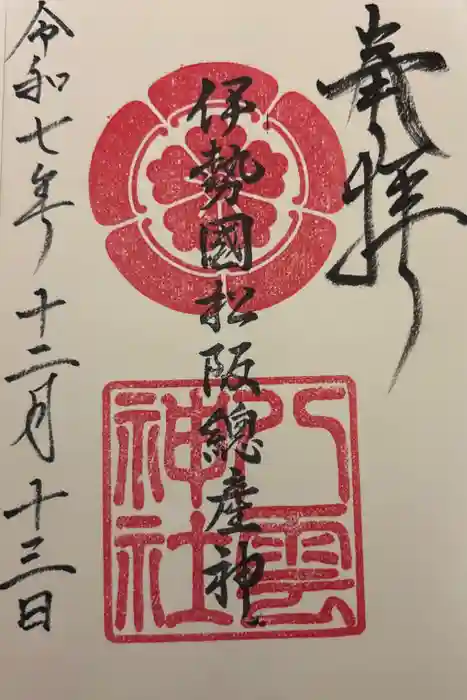 奉拝
伊勢國松阪總産神
八雲神社
令和七年 十二月 十三日